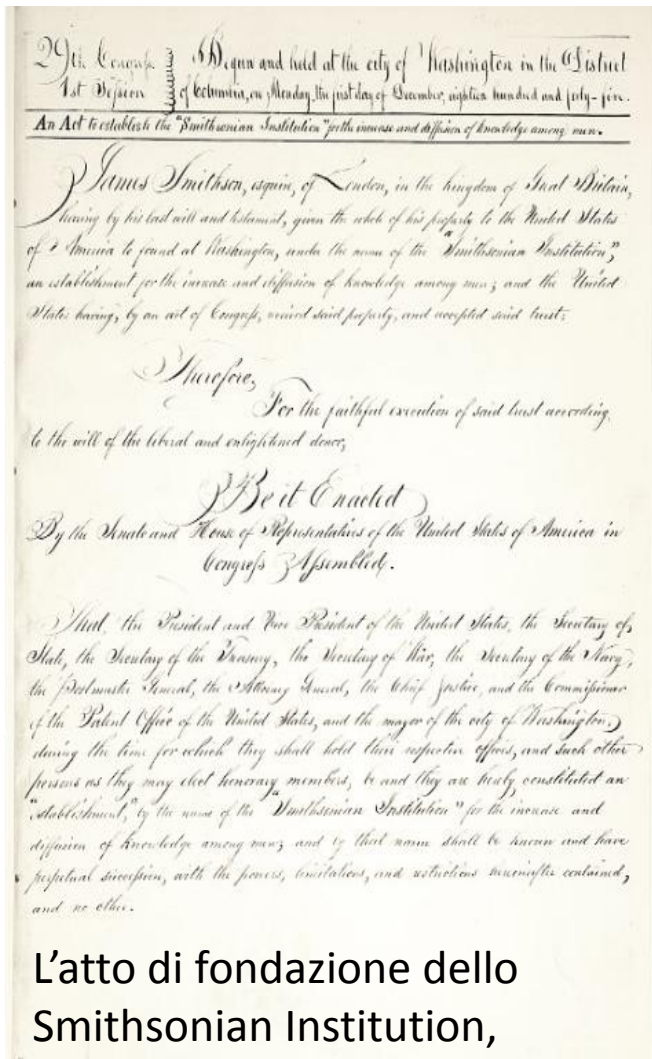 29th Congress
1st Session
Begun and held at the city of Washington in the District
of Columbia, on Monday, the first day of December, eighteen hundred and forty-five.
An Act to establish the "Smithsonian Institution" for the increase and diffusion of knowledge among men.
James Smithson, esquire, of London, in the kingdom of Great Britain,
having by his last will and testament, given the whole of his property to the United States
of America to found at Washington, under the name of the "Smithsonian Institution,"
an establishment for the increase and diffusion of knowledge among men; and the United
States having, by an act of Congress, received said property, and accepted said trust;
Therefore,
For the faithful execution of said trust according
to the will of the liberal and enlightened donor;
Be it Enacted
By the Senate and House of Representatives of the United States of America in
Congress Assembled.
That, the President and Vice President of the United States, the Secretary of
State, the Secretary of the Treasury, the Secretary of War, the Secretary of the Navy,
the Postmaster General, the Attorney General, the Chief Justice, and the Commissioner
of the Patent Office of the United States, and the mayor of the city of Washington,
during the time for which they shall hold their respective offices, and such other
persons as they may elect honorary members, be and they are hereby constituted an
"establishment," by the name of the "Smithsonian Institution" for the increase and
diffusion of knowledge among men; and by that name shall be known and have
perpetual succession, with the powers, limitations, and restrictions hereinafter contained,
and no other.
L'atto di fondazione dello
Smithsonian Institution,